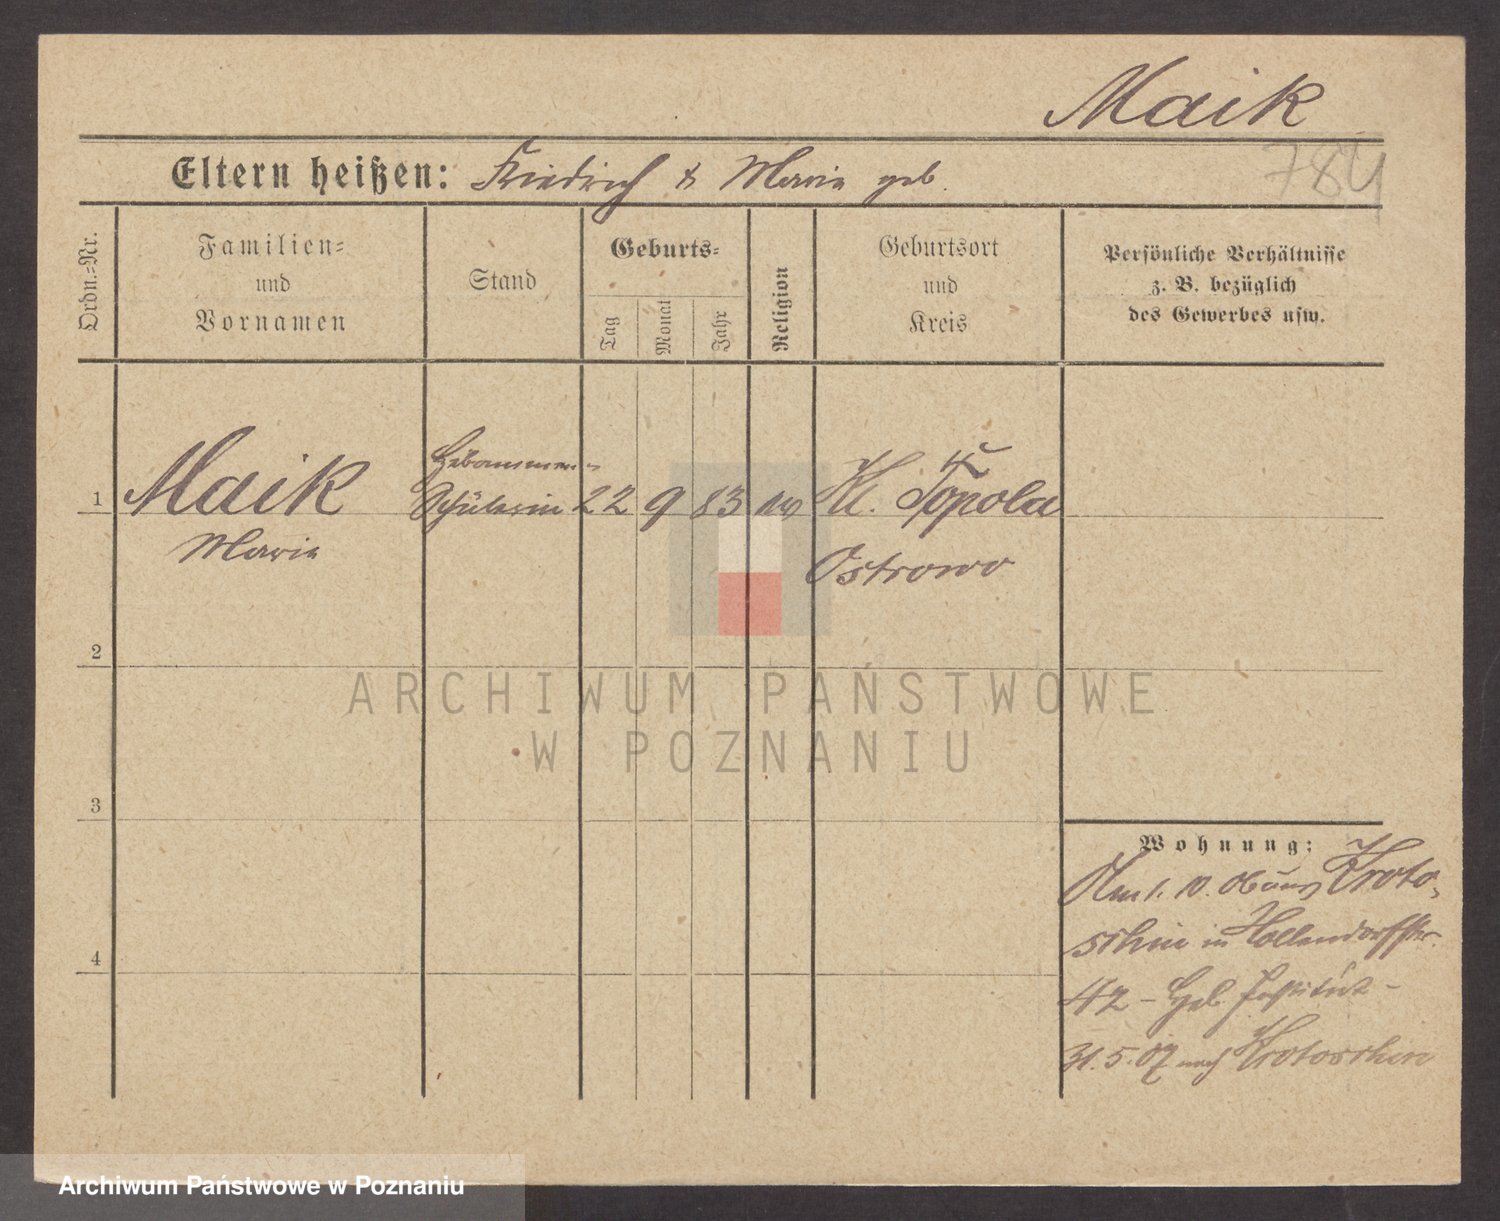 Maik
784
Eltern heißen: Friedrich & Marie geb.
Ordn.=Nr.
Familien=
und
Vornamen
Stand
Geburts=
Tag
Monat
Jahr
Religion
Geburtsort
und
Kreis
Persönliche Verhältnisse
z. B. bezüglich
des Gewerbes usw.
Hebammen-
1 Maik Schülerin 22 9 83 Kl. Topola
Marie Ostrowo
2
ARCHIWUM PAŃSTWOWE
W POZNANIU
3
Wohnung:
10. Kroto-
schin in Hollendorffstr.
42 - Heb. Institut -
31.5.07 nach Krotoschin
4
Archiwum Państwowe w Poznaniu